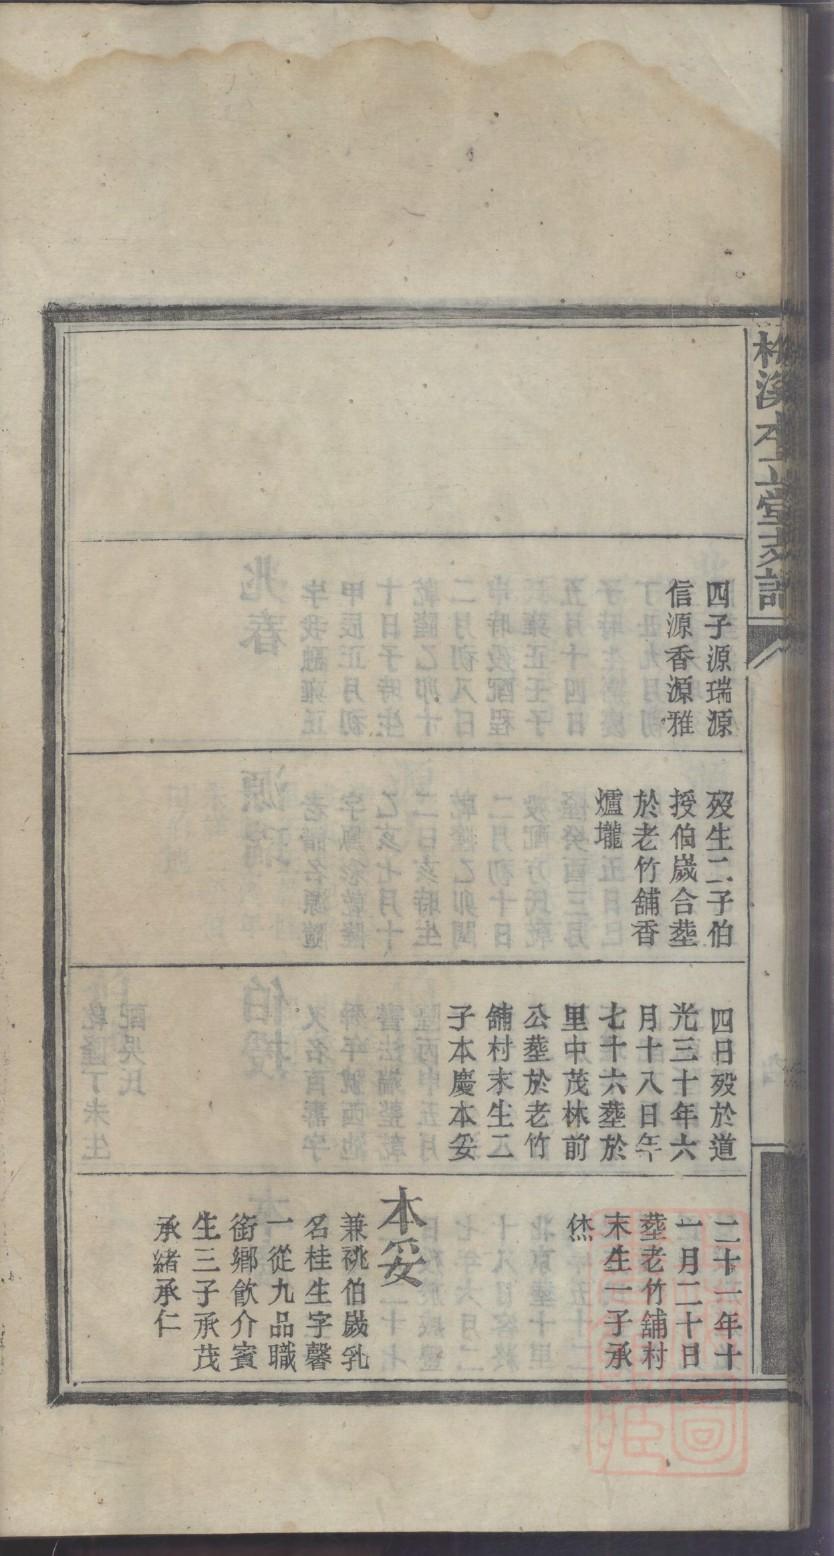 四子源瑞源
信源香源雅
歿生二子伯
授伯嵗合塟
於老竹舖香
爐壠
四日歿於道
光三十年六
月十八日年
七十六塟於
里中茂林前
公塟於老竹
舖村末生二
子本慶本妥
二十一年十
一月二十日
塟老竹舖村
末生一子承
烋
本妥
兼祧伯嵗乳
名桂生字馨
一從九品職
銜鄉飲介賓
生三子承茂
承緒承仁